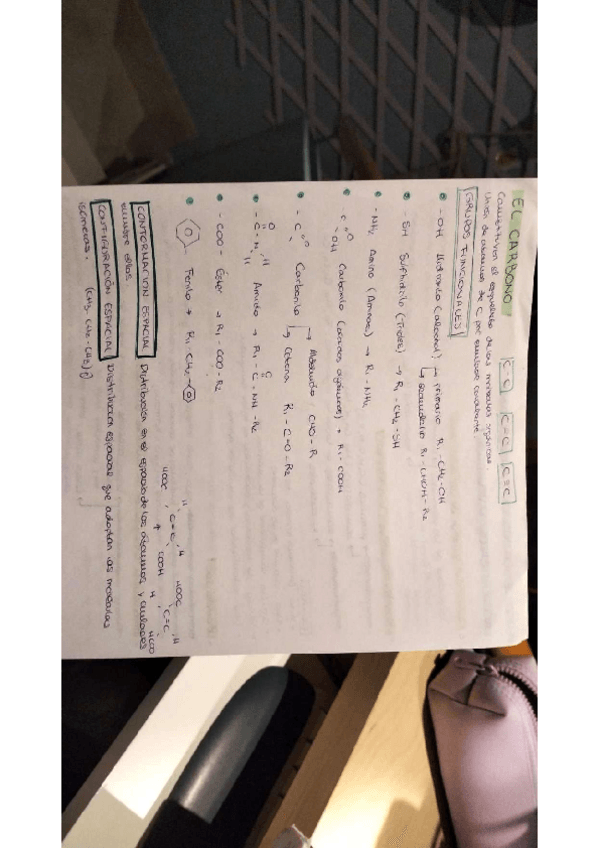 EL CARBONO
C-C C=C C≡C
Constituyen el esqueleto de las moléculas orgánicas
Unión de átomos de C por enlace covalente
GRUPOS FUNCIONALES
- OH Hidroxilo (alcohol) → primario R₁-CH₂-OH
↳ secundario R₁-CHOH-R₂
- SH Sulfhidrilo (Tioles) → R₁-CH₂-SH
- NH₂ Amino (Aminas) → R₁-NH₂
- C =O OH Carboxilo (ácidos orgánicos) → R₁-COOH
- C =O Carbonilo → Aldehído CHO-R
↳ Cetona R₁-C=O-R₂
- C-N-H Amida → R₁-C-NH-R₂
O H O
- COO- Éster → R₁-COO-R₂
- Fenilo → R₁-CH₂-
H H HOOC H
C=C C=C
HOOC COOH H
CONFORMACIÓN ESPACIAL Distribución en el espacio de los átomos y enlaces
CONFIGURACIÓN ESPACIAL Distribución espacial que adoptan las moléculas
isómeras. (CH₃-CH₂-CH₃)